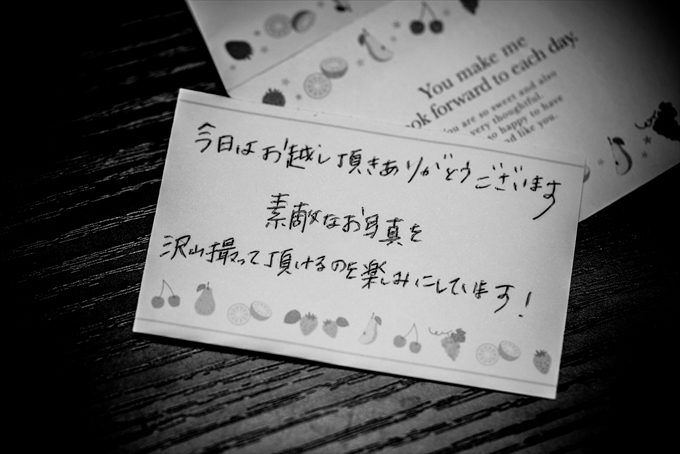 You make me
ok forward to each day.
ou are so sweet and also
very thoughtful.
so happy to have
nd like you.
今日はお越し頂きありがとうございます
素敵なお写真を
沢山撮って頂けるのを楽しみにしています!